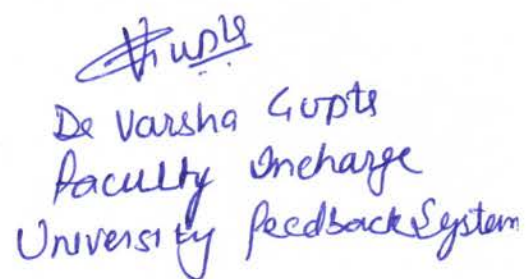 VGupta
Dr Varsha Gupta
Faculty Incharge
University Feedback System